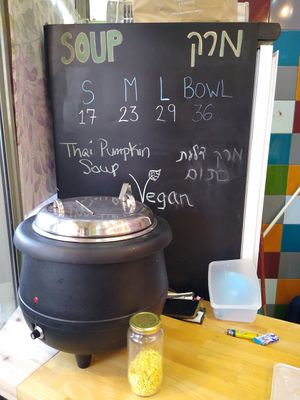 SOUP מרק
S M L BOWL
17 23 29 36
Thai Pumpkin
Soup
מרק דלעת
Vegan